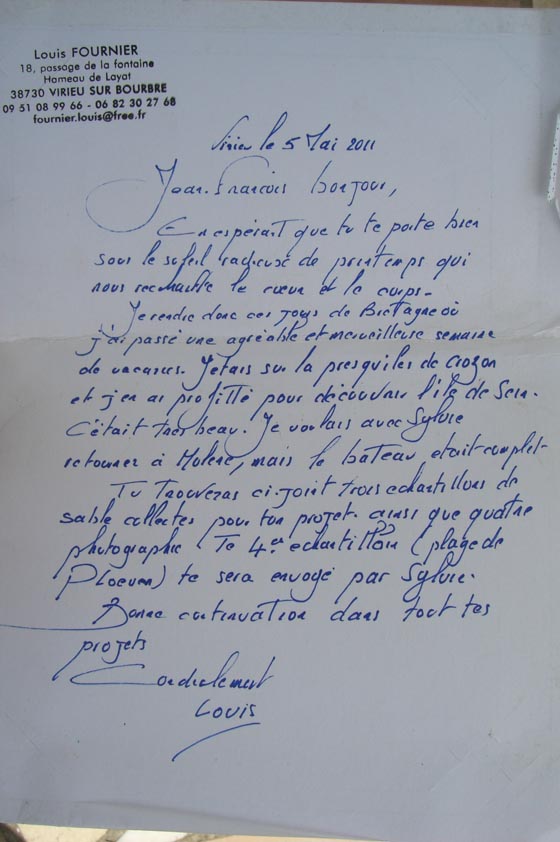 Louis FOURNIER
18, passage de la fontaine
Hameau de Layat
38730 VIRIEU SUR BOURBRE
09 51 08 99 66 - 06 82 30 27 68
fournier.louis@free.fr
Virieu le 5 Mai 2011
Jean-François bonjour,
En espérant que tu te porte bien
sous le soleil radieuse de printemps qui
nous réchauffe le cœur et le corps-
Je rentre donc ces jours de Bretagne où
j'ai passé une agréable et merveilleuse semaine
de vacances. J'étais sur la presqu'iles de Crozon
et j'en ai profitté pour découvrir l'île de Sein.
C'était très beau. Je voulais avec Sylvie
retourner à Molène, mais le bateau était complet-
Tu trouveras ci-joint trois échantillons de
sable collectes pour ton projet. ainsi que quatre
photographie. Te 4er echantillon (plage de
Ploeven) te sera envoyé par Sylvie.
Bonne continuation dans tout tes
projets
Cordialement
Louis